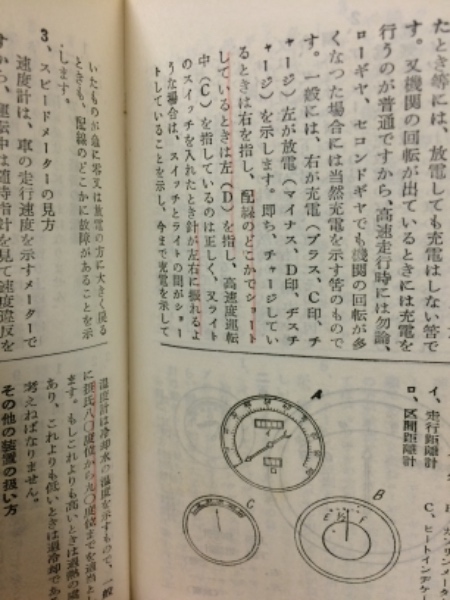 たとき等には、放電しても充電はしない筈で
す。又機関の回転が出ているときには充電を
行うのが普通ですから、高速走行時には勿論、
ローギヤ、セコンドギヤでも機関の回転が多
くなった場合には当然充電を示す筈のもので
す。一般には、右が充電（プラス、C印、チ
ャージ）左が放電（マイナス、D印、ヂスチ
ャージ）を示します。即ち、チャージしてい
るときは右を指し、配線のどこかでショート
しているときは左（D）を指し、高速度運転
中（C）を指しているのは正しく、又ライト
のスイッチを入れたとき針が左右に振れるよ
うな場合は、スイッチとライトの間がショー
トしていることを示し、今まで充電を示して
イ、走行距離計
ロ、区間距離計
B、ガソリンメータ
C、ヒートインヂケー
A
B
C
E
F
いたものが急に零又は放電の方に大きく戻る
ときも、配線のどこかに故障があることを示
します。
3、スピードメーターの見方
速度計は、車の走行速度を示すメーターで
すから、運転中は随時指針を見て速度違反を
温度計は冷却水の温度を示すもので、一般
に摂氏八〇度位から九〇度位までを適当とし
ます。もしこれよりも高いときは過熱の
あり、これよりも低いときは過冷却であ
考えねばなりません。
その他の装置の扱い方